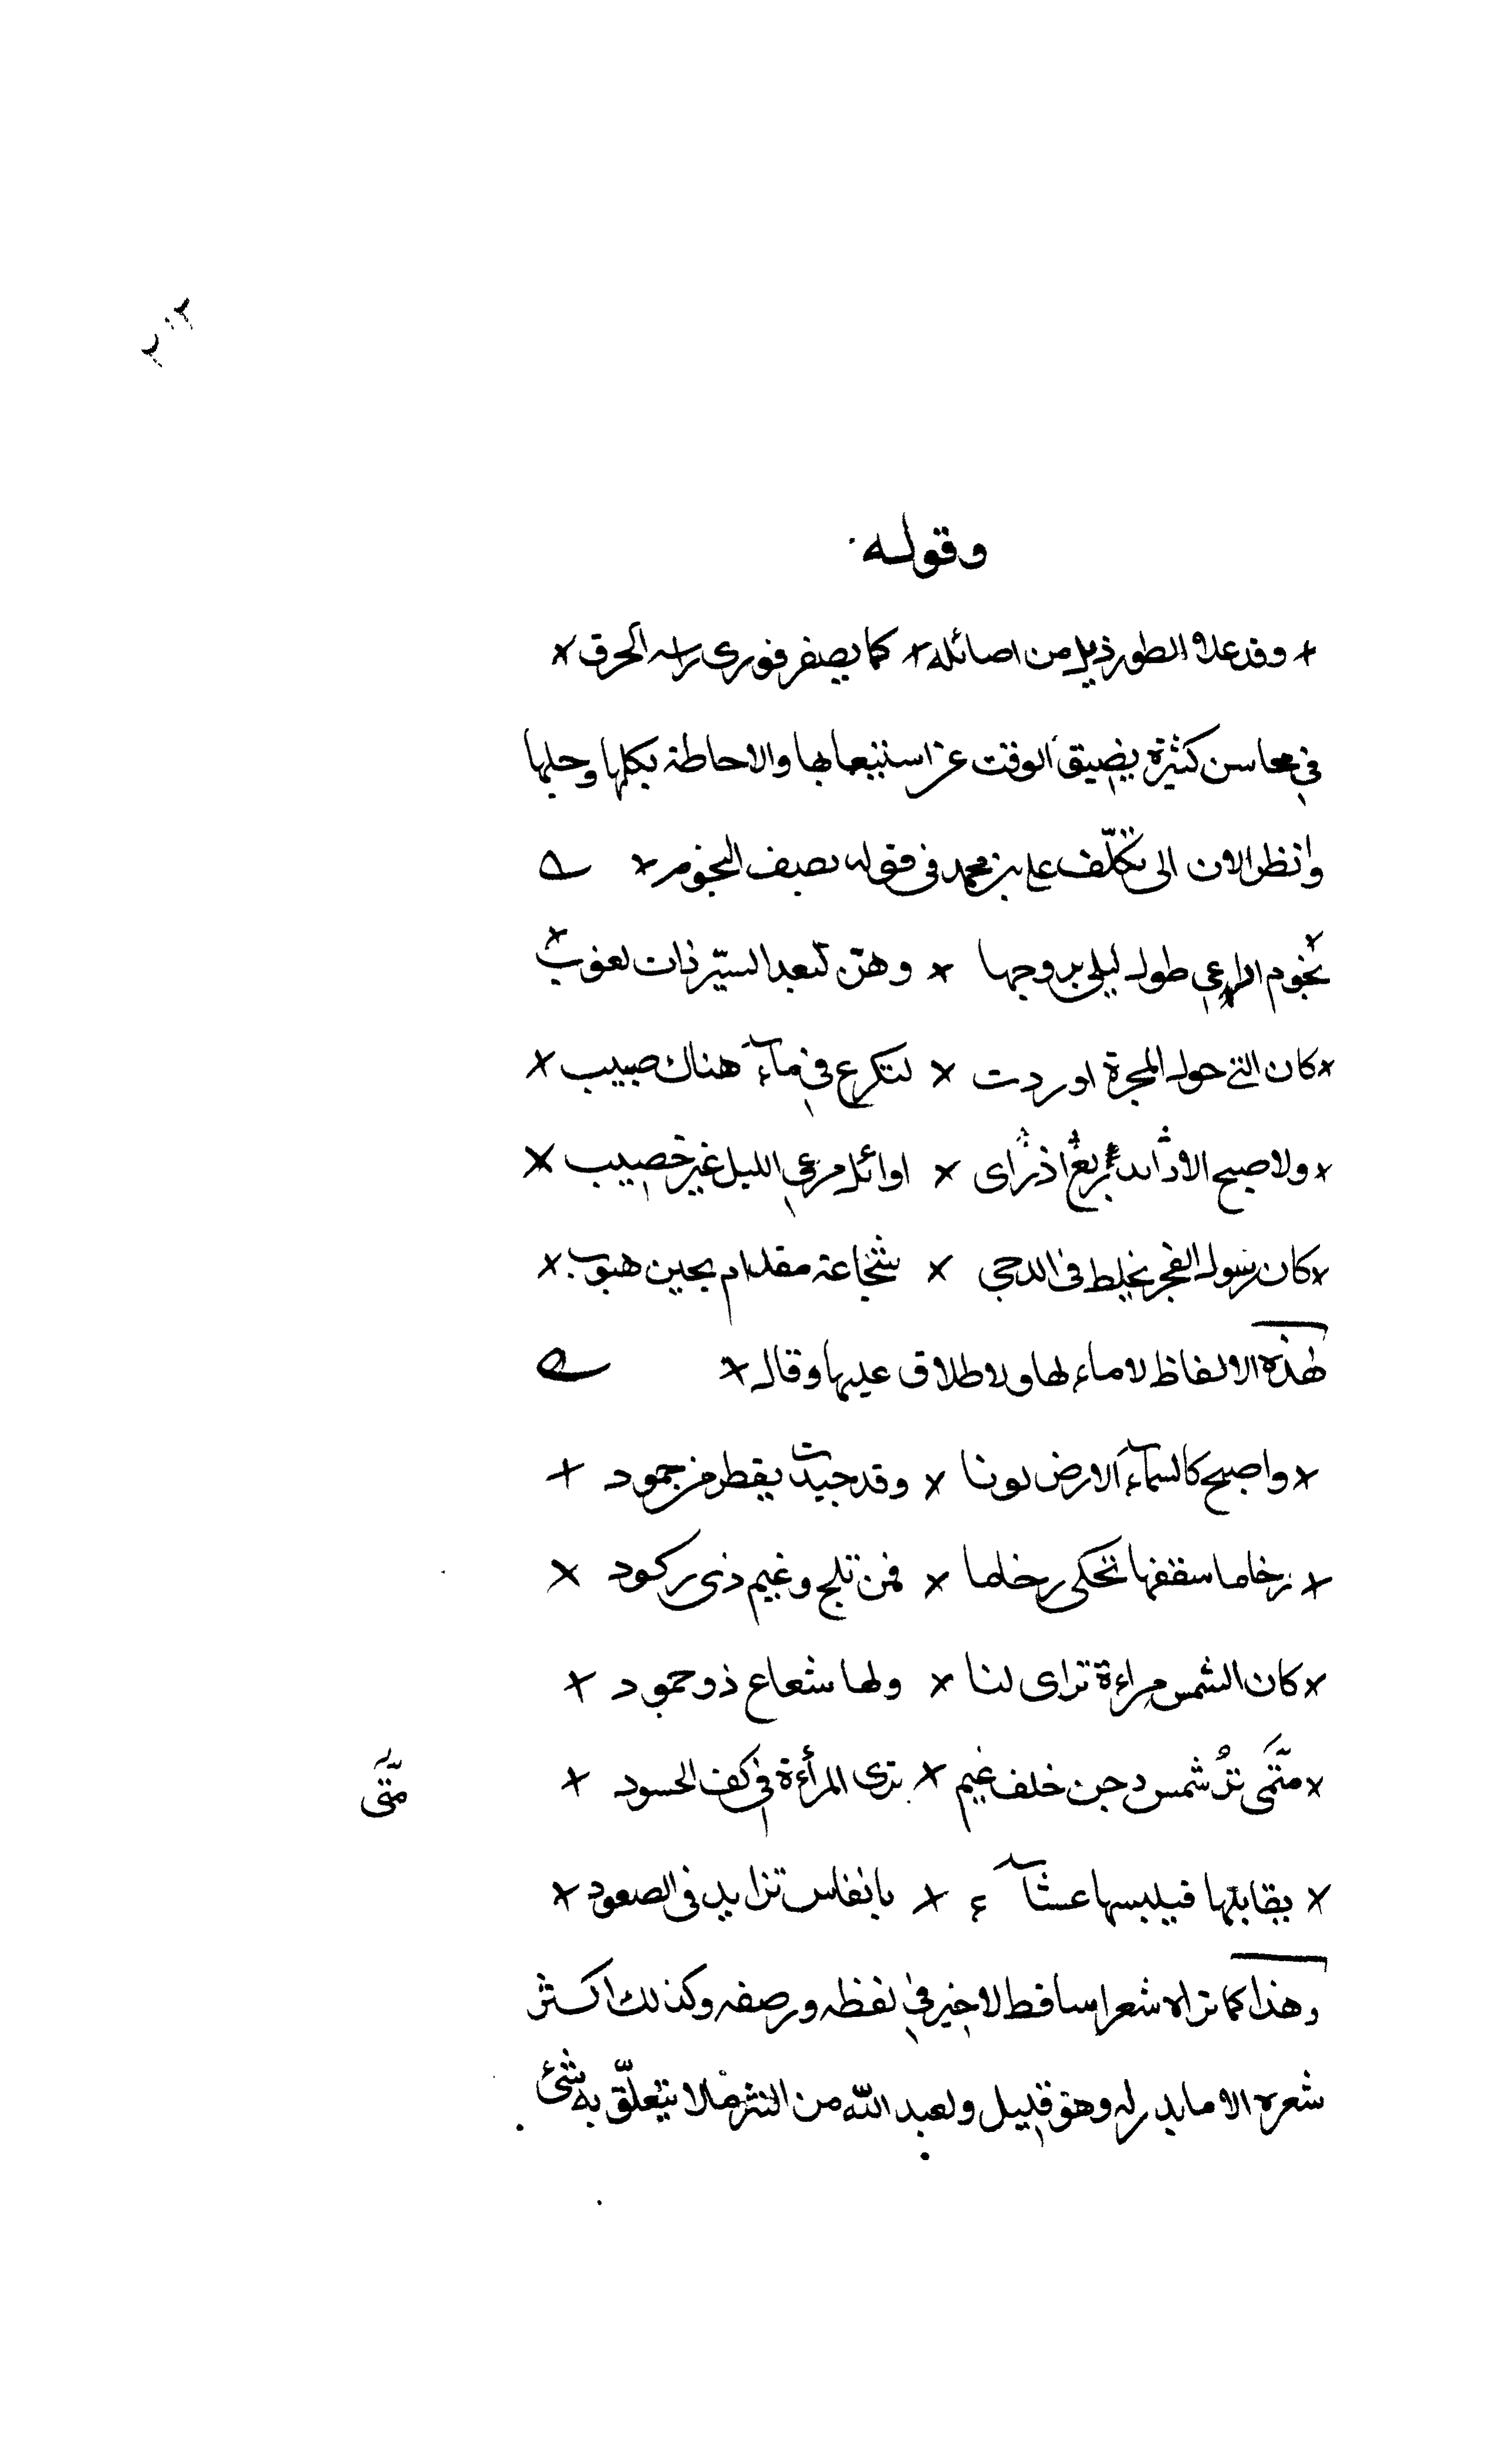 ٢٠٢
وقوله
وقد علا الطور ذيل من اصائله × كما يصفر فودى راسه الحرق ×
في محاسن كثيرة يضيق الوقت عن استتبعابها والاحاطة بكلها وجلها
وانظر الان الى تكلّف على بن محمد فى قوله يصف النجوم ×
نجوم اراعي طول ليلي بروجها × وهنّ لبعد السيّر ذات لغوب ×
× كان التي حول المجرة اوردت × لتكرع في مآء هناك صبيب ×
× ولا صبح الا اذ راى × اوائل مرعي الليل غير خصيب ×
× كان رسول الفجر يخلط فى الدجى × شجاعة مقدام بجبن هبوب ×
هذه الالفاظ لا ماء لها ولا طلاق عليها وقال ×
× واصبح كالسمآء الارض لونا × وقد جيدت بقطر من جمود ×
× رخاما سقفها تحكى رخاما × فمن ثلج وغيم ذى ركود ×
× كان الشمس مراءة تراى لنا × ولها شعاع ذو خمود ×
× متَّى ترُ شمس دجن خلف غيم × ترى المرأءة في كف الحسود ×
متَّى
× يقابلها فيلبسها عشآء × بانفاس تزايد فى الصعود ×
وهذا كما تراه شعر ساقط لا خير في لفظه ورصفه وكذلك اكثر
شعره الا ما يدر له وهو قليل ولعبد الله من النثر ما لا يتعلّق به شئ